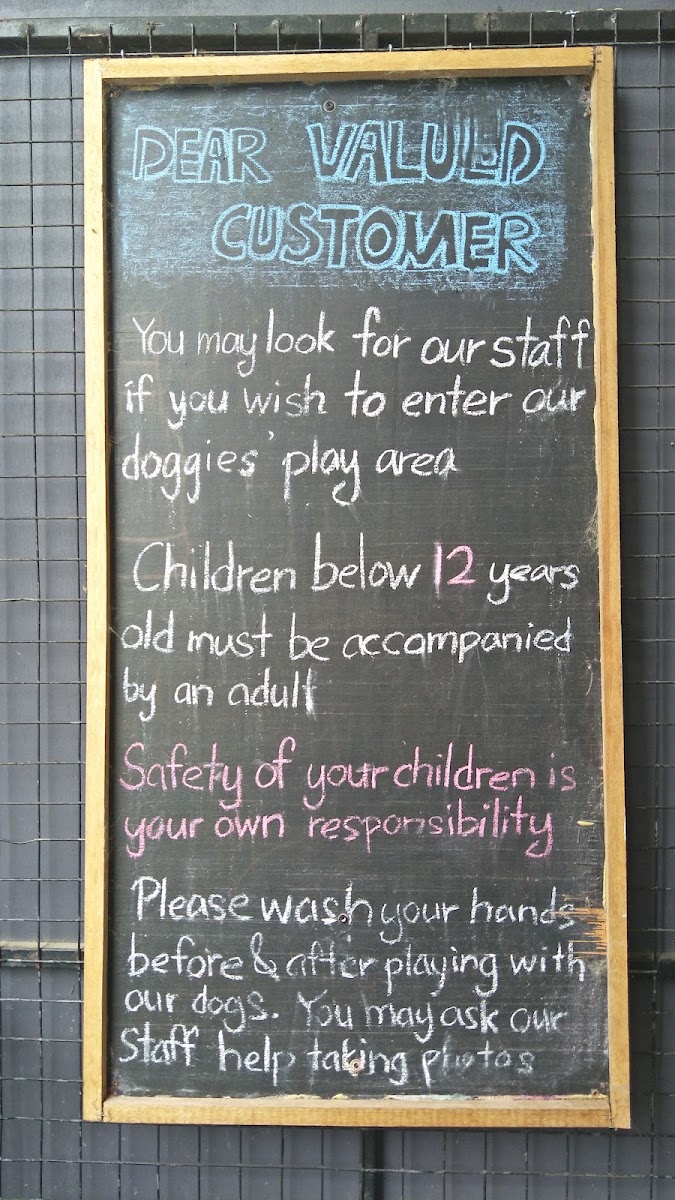 DEAR VALUED
CUSTOMER
You may look for our staff
if you wish to enter our
doggies' play area
Children below 12 years
old must be accompanied
by an adult
Safety of your children is
your own responsibility
Please wash your hands
before & after playing with
our dogs. You may ask our
Staff help taking photos